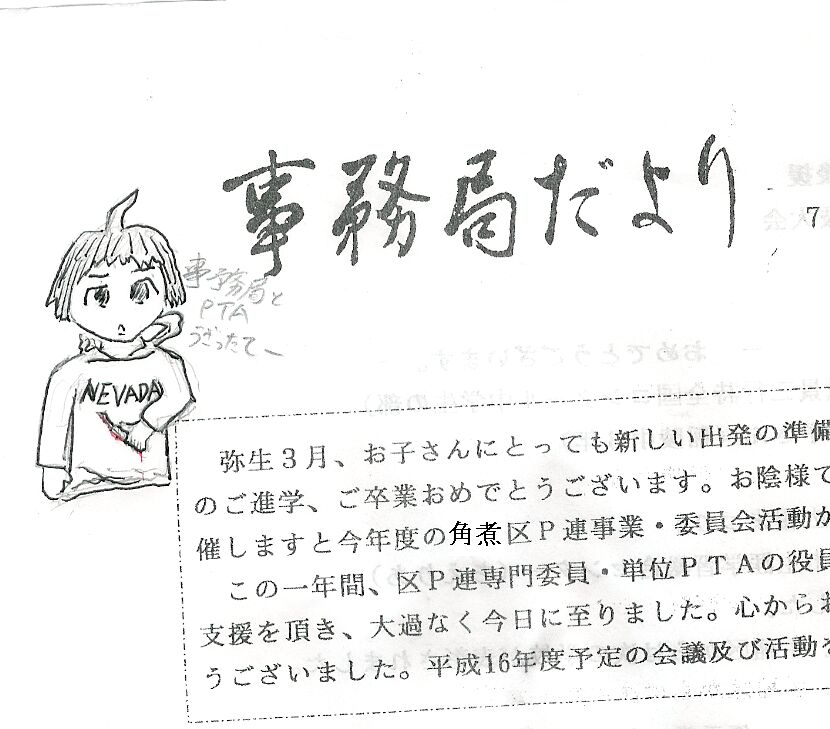 事務局だより
7
事務局と
PTA
うざったて〜
NEVADA
弥生３月、お子さんにとっても新しい出発の準備
のご進学、ご卒業おめでとうございます。お陰様で
催しますと今年度の角煮区Ｐ連事業・委員会活動が
この一年間、区Ｐ連専門委員・単位ＰＴＡの役員
支援を頂き、大過なく今日に至りました。心からお
うございました。平成16年度予定の会議及び活動を